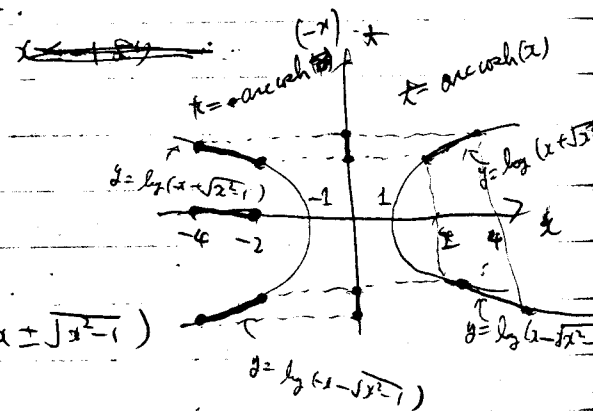 (-x) t
t = arccosh
t = arccosh(x)
y = log(x+√x²
y = log(-x+√x²-1)
-1
1
-4
-2
2
4
x
x ± √x²-1 )
y = log(x-√x²-
y = log(-x-√x²-1)